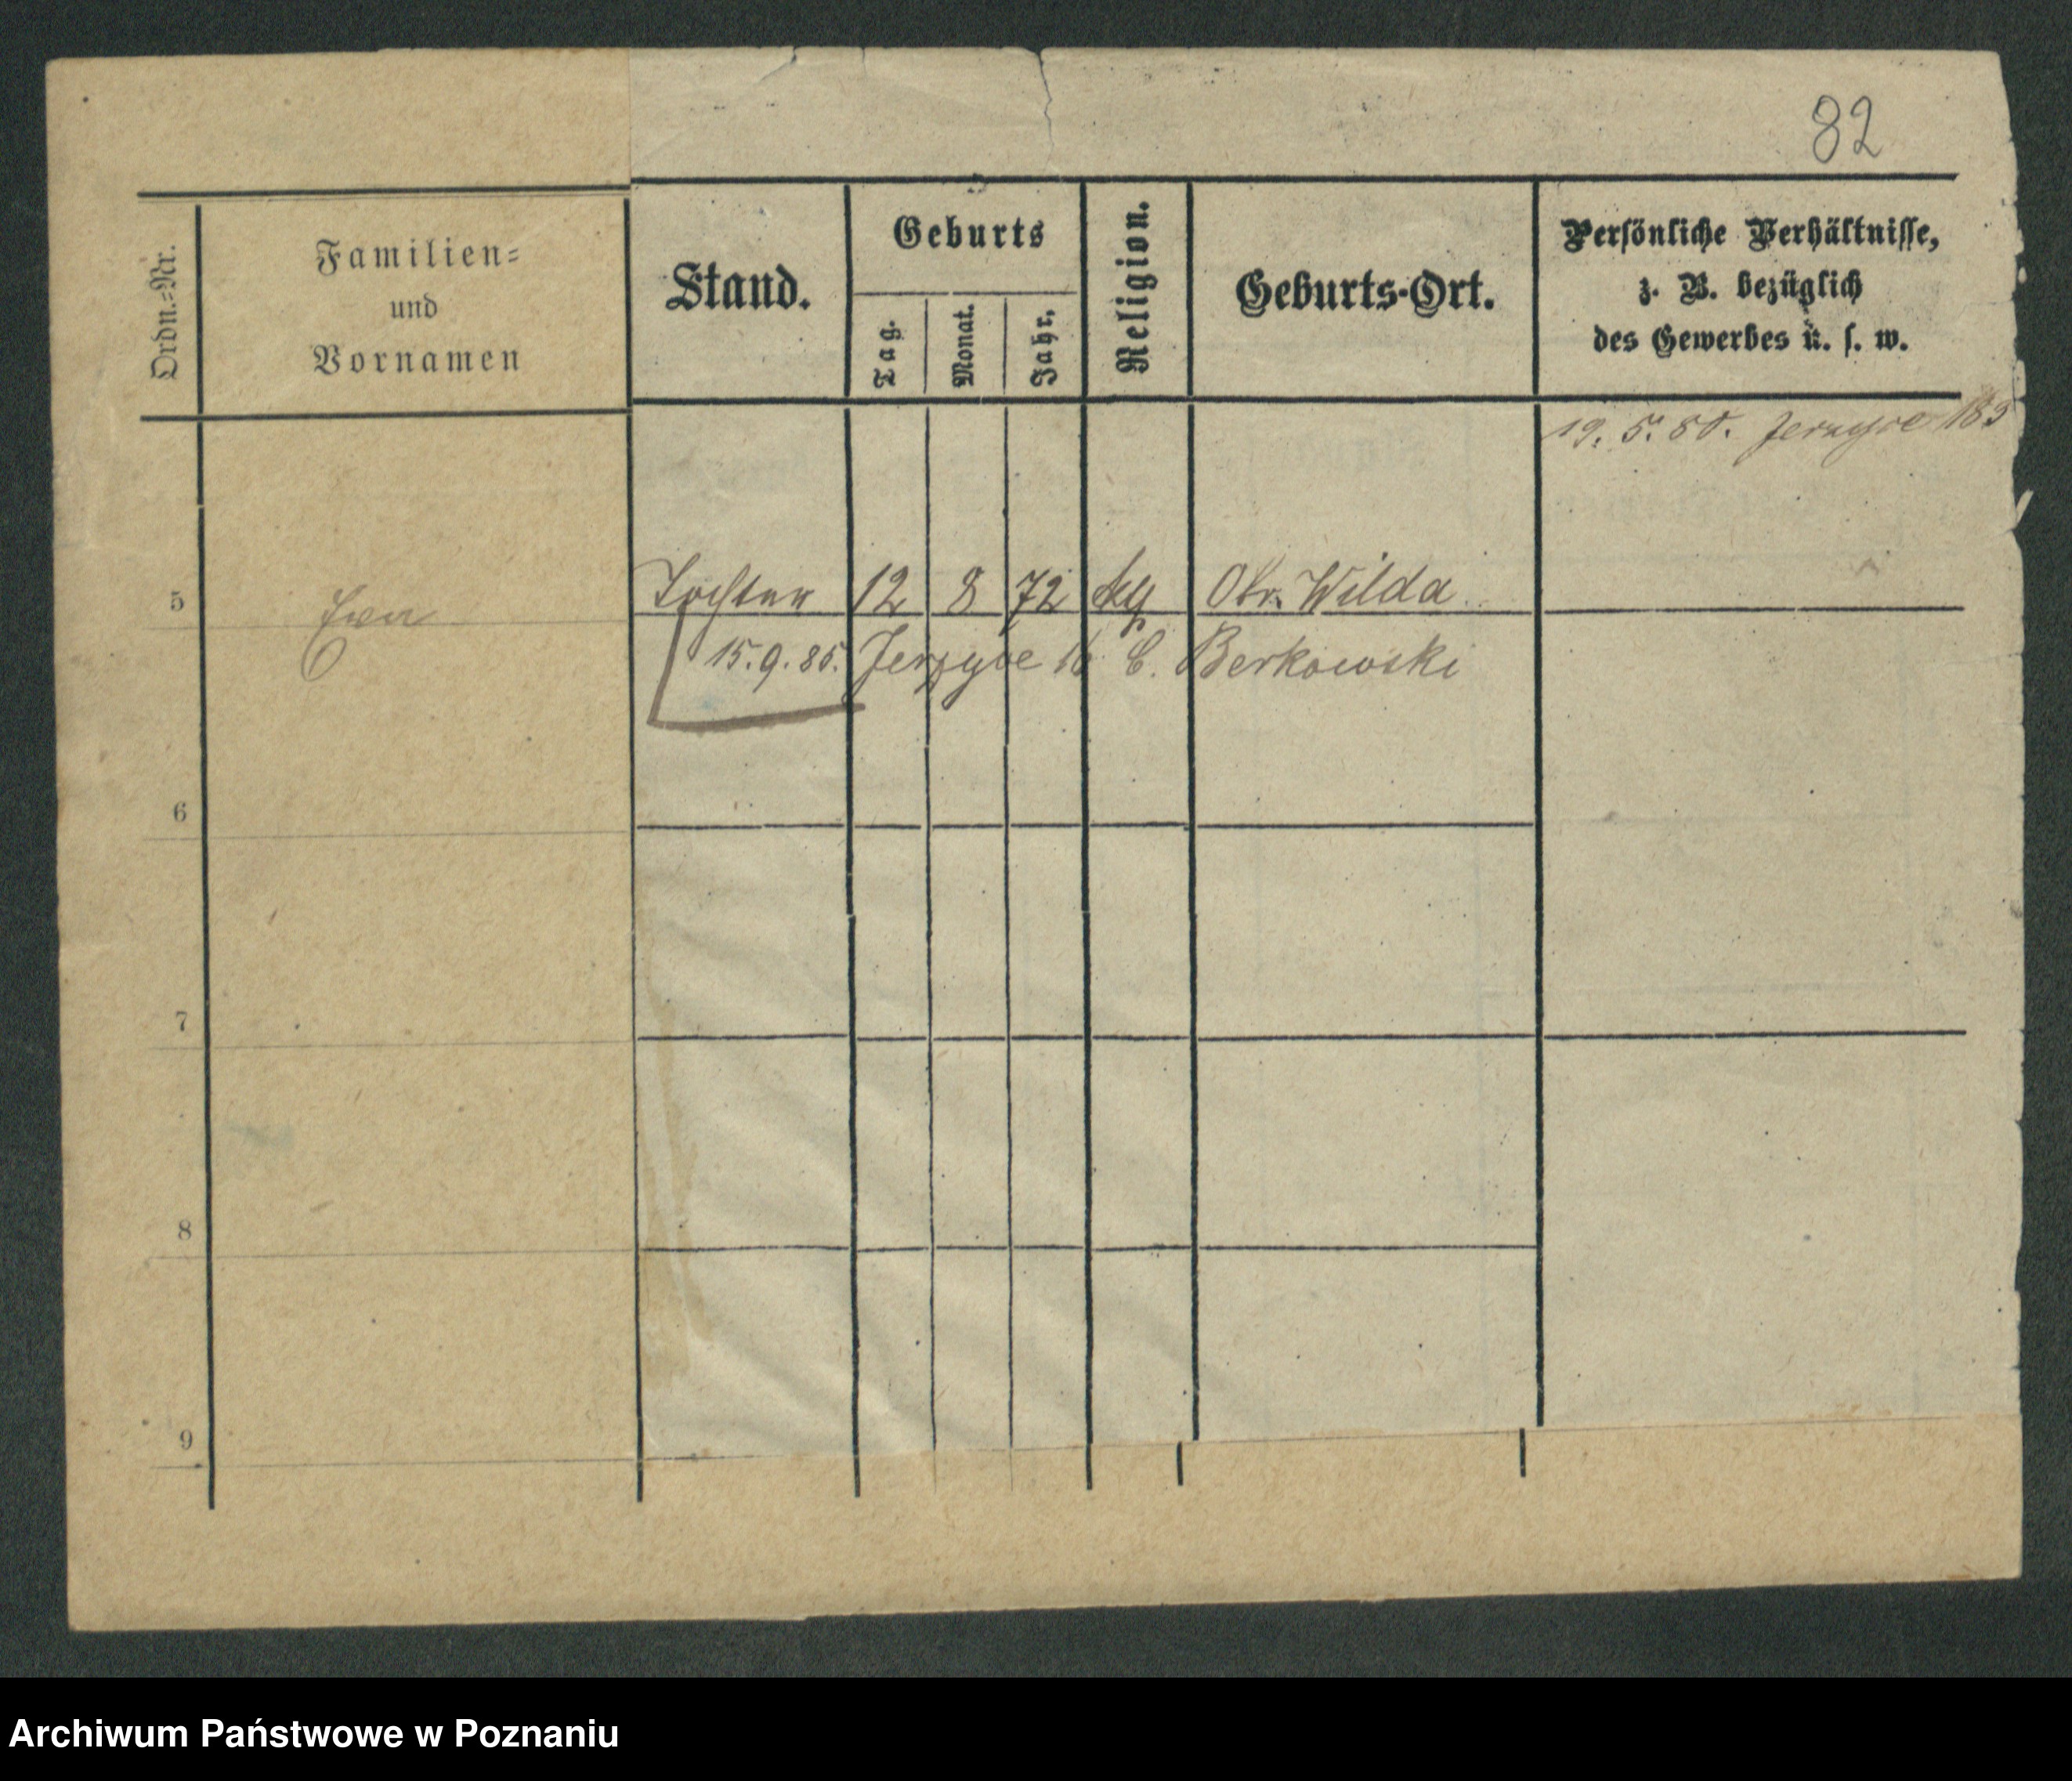 82
Ordn.=Nr.
Familien=
und
Vornamen
Stand.
Geburts
Tag.
Monat.
Jahr.
Religion.
Geburts-Ort.
Persönliche Verhältnisse,
z. B. bezüglich
des Gewerbes u. s. w.
19. 5. 80. Jerzyce 183
5 Ewa Tochter 12 8 72 kg Obr. Wilda
15. 9. 85. Jerzyce 16 b. Berkowski
6
7
8
9
Archiwum Państwowe w Poznaniu